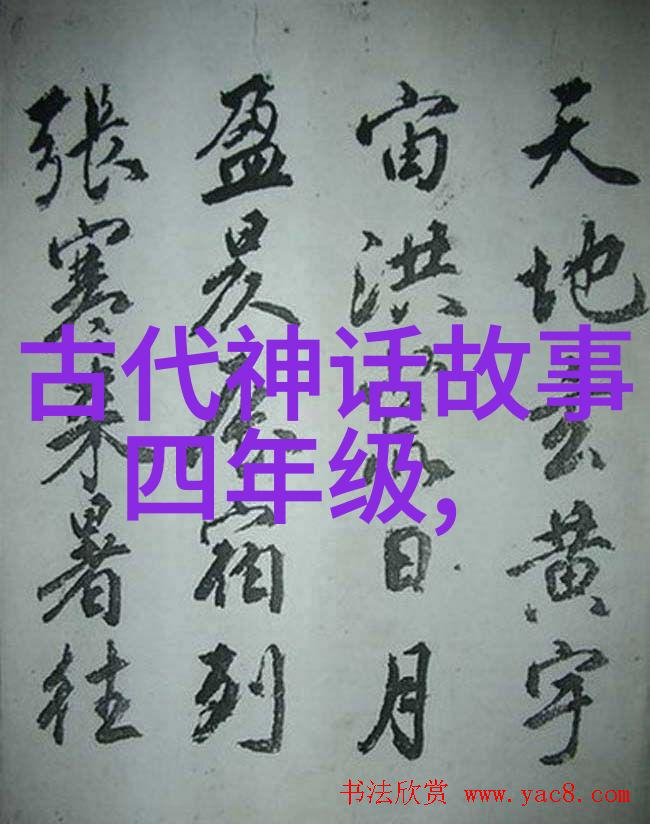 天地玄黄宇
宙洪荒日月
盈昃辰宿列
張寒来暑往
古代神话故事
四年级,
书法欣赏 www.yac8.com